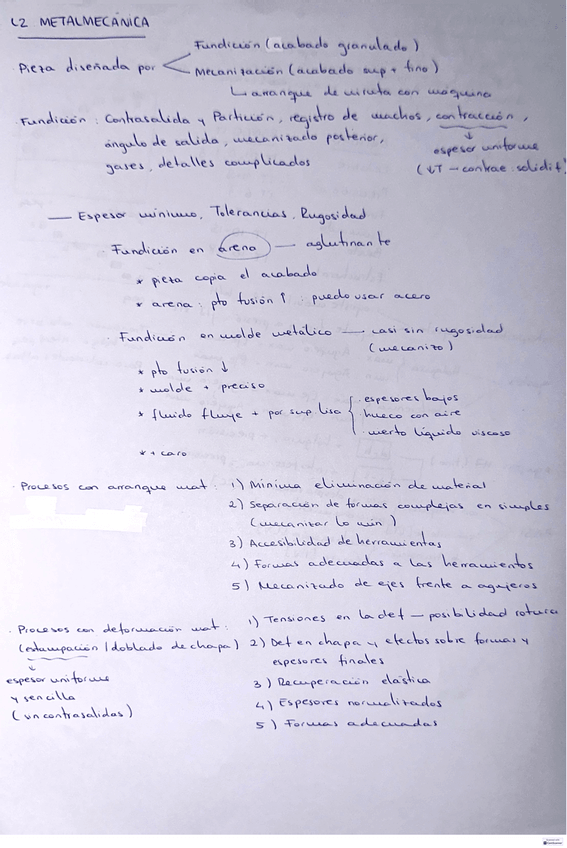 L2 METALMECÁNICA
Pieza diseñada por
Fundición (acabado granulado)
Mecanización (acabado sup + fino)
↳ arranque de viruta con máquina
· Fundición : Contrasalida y Partición, registro de machos, contracción,
ángulo de salida, mecanizado posterior,
gases, detalles complicados
↓
espesor uniforme
(↓T - contrae solidif)
— Espesor mínimo, Tolerancias, Rugosidad
Fundición en arena — aglutinante
* pieza copia el acabado
* arena : pto fusión ↑ : puedo usar acero
Fundición en molde metálico — casi sin rugosidad
(mecanizo)
* pto fusión ↓
* molde + preciso
* fluido fluye + por sup liso
espesores bajos
hueco con aire
líquido viscoso
* + caro
· Procesos con arranque mat : 1) Mínima eliminación de material
2) Separación de formas complejas en simples
(mecanizar lo min)
3) Accesibilidad de herramientas
4) Formas adecuadas a las herramientas
5) Mecanizado de ejes frente a agujeros
· Procesos con deformación mat :
(estampación / doblado de chapa)
↓
espesor uniforme
y sencilla
(sin contrasalidas)
1) Tensiones en la def — posibilidad rotura
2) Def en chapa y efectos sobre formas y
espesores finales
3) Recuperación elástica
4) Espesores normalizados
5) Formas adecuadas